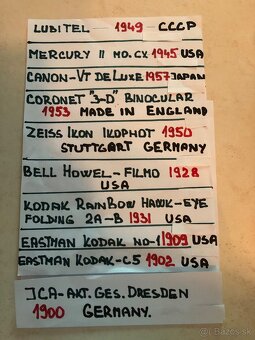 LUBITEL 1949 CCCP
MERCURY II MO.CX 1945 USA
CANON-VT DELUXE 1957 JAPAN
CORONET "3-D" BINOCULAR
1953 MADE IN ENGLAND
ZEISS IKON IKOPHOT 1950
STUTTGART GERMANY
BELL HOWEL-FILMO 1928
USA
KODAK RAINBOW HAWK-EYE
FOLDING 2A-B 1931 USA
EASTMAN KODAK NO-1 1909 USA
EASTMAN KODAK-C5 1902 USA
JCA-AKT.GES.DRESDEN
1900 GERMANY.
bazos.sk